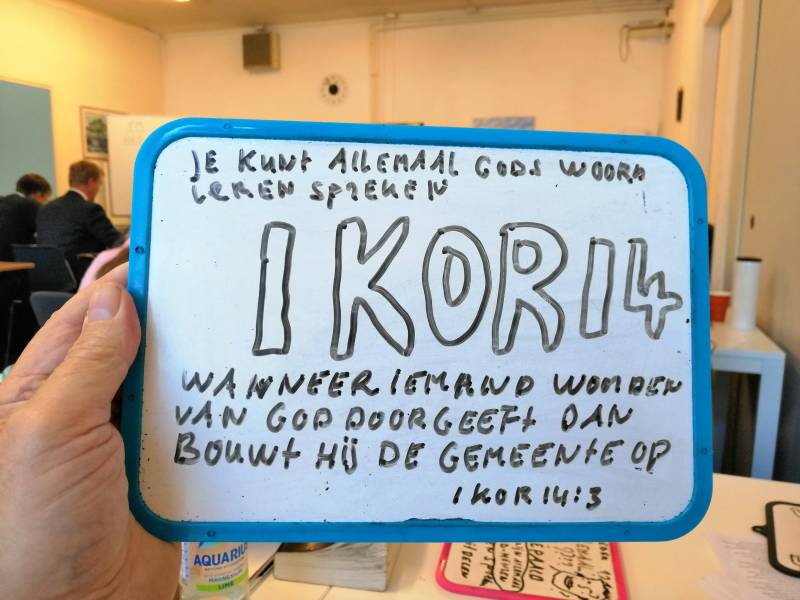 JE KUNT ALLEMAAL GODS WOORD
LEREN SPREKEN
1 KOR 14
WANNEER IEMAND WOORDEN
VAN GOD DOORGEEFT DAN
BOUWT HIJ DE GEMEENTE OP
1 KOR 14:3
AQUARIUS
MAGNESIUM
LIME